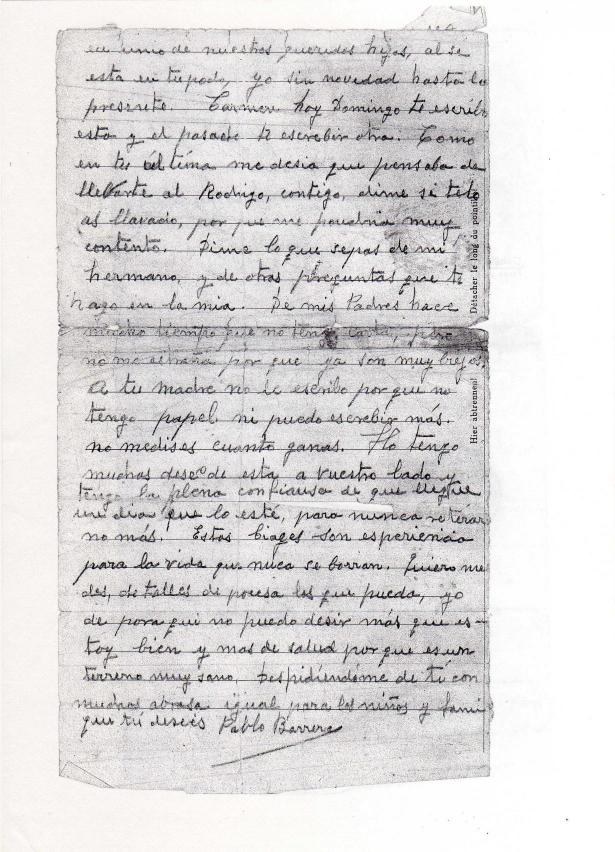 en uno de nuestros queridos hijos, al se
esta en tu poda, yo sin novedad hasta la
presente. Carmen hoy Domingo te escribo
esta y el pasado te escrebir otra. Como
en tu última me desia que pensaba de
llevarte al Rodrigo, contigo, dime si telo
as llavado, por que me pondria muy
contento. Dime lo que sepas de mi
hermano, y de otras preguntas que te
hago en la mia. De mis Padres hace
mucho tiempo que no tengo carta, pero
no me estraña por que ya son muy biejos.
A tu madre no le escribo por que no
tengo papel ni puedo escrebir más.
no medises cuanto ganas. Yo tengo
muchos deseo de esta a vuestro lado y
tengo la plena confiansa de que llegue
un dia que lo esté, para nunca retirar
no más. Estos biages son esperiencia
para la vida que nuca se borran. Quiero me
des, detalles de poresa los que pueda, yo
de pora qui no puedo desir más que es-
toy bien y mas de salud por que es un
terreno muy sano, Despidiéndome de tí con
muchos abrasa igual para los niños y fami
que tú desees Pablo Barrera
Détacher le long du pointillé
Hier abtrennen!